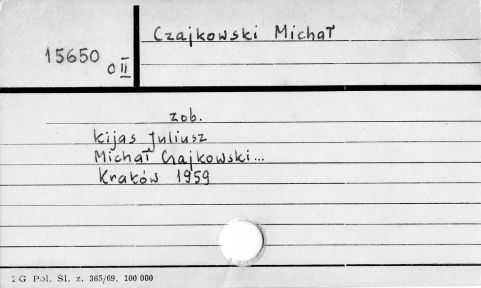 Czajkowski Michał
15650
O II
zob.
Kijas Juliusz
Michał Czajkowski...
Kraków 1959
ZG Pol. Śl. z. 365/69, 100 000